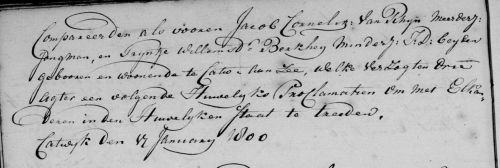 Compareerden als vooren Jacob Corneliz: Van Rhijn Meerderj:
Jongman, en Trijntje Willemsdr. Berkheij Minderj: J:D: beyden
gebooren en woonende te Catw: Aan Zee, welke verzogten drie
agter een volgende Huwelijks Proclamatien om met Elkan-
deren in den Huwelijken staat te treeden.
Catwyk den 17 January 1800